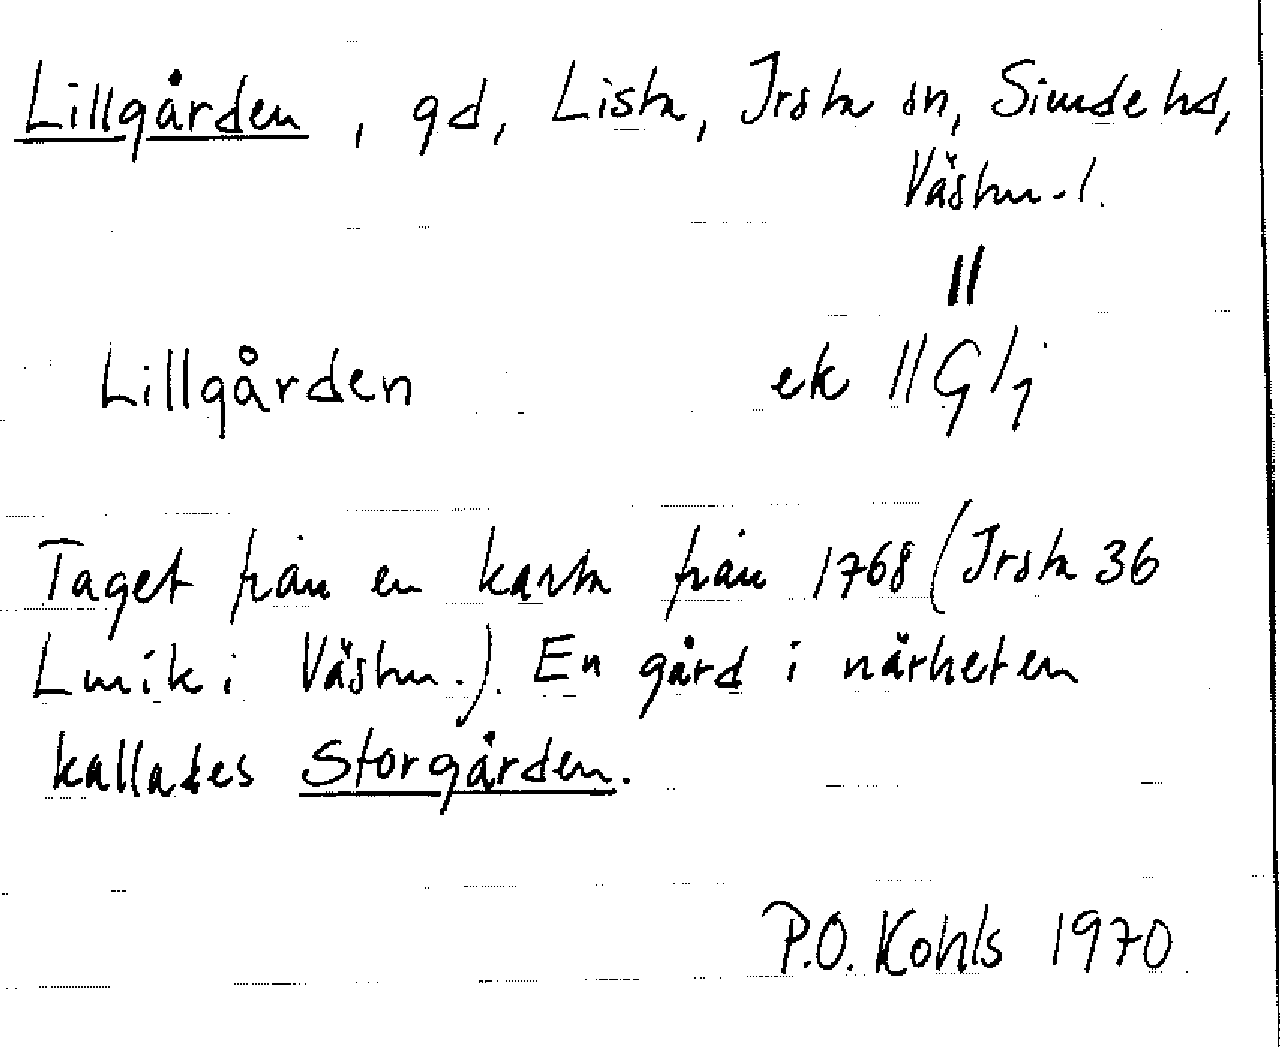 Lillgården, gd, Lista, Irsta sn, Siende hd,
Västm. l.
||
Lillgården ek || G/j
Taget från en karta från 1768 (Irsta 36
Lmik i Västm.). En gård i närheten
kallades Storgården.
P.O. Kohls 1970